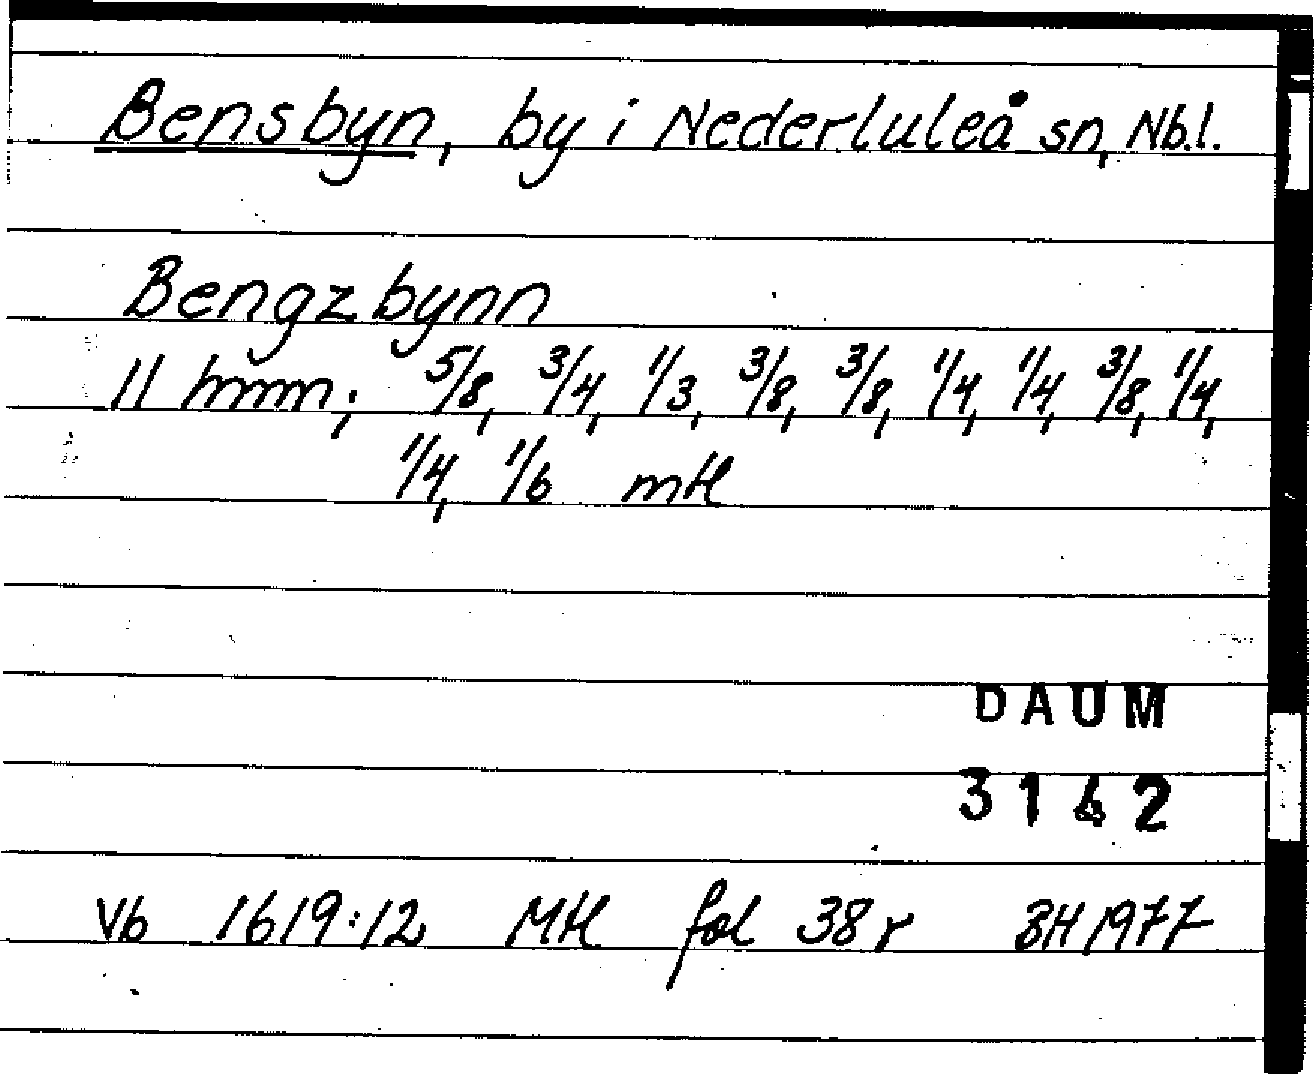 Bensbyn, by i Nederluleå sn, Nb.l.
Bengzbynn
11 hmm; 5/8, 3/4, 1/3, 3/8, 3/8, 1/4, 1/4, 3/8, 1/4,
1/4, 1/6 mtl
DAUM
3142
Vb 1619:12 Mtl fol 38 r BH 1977